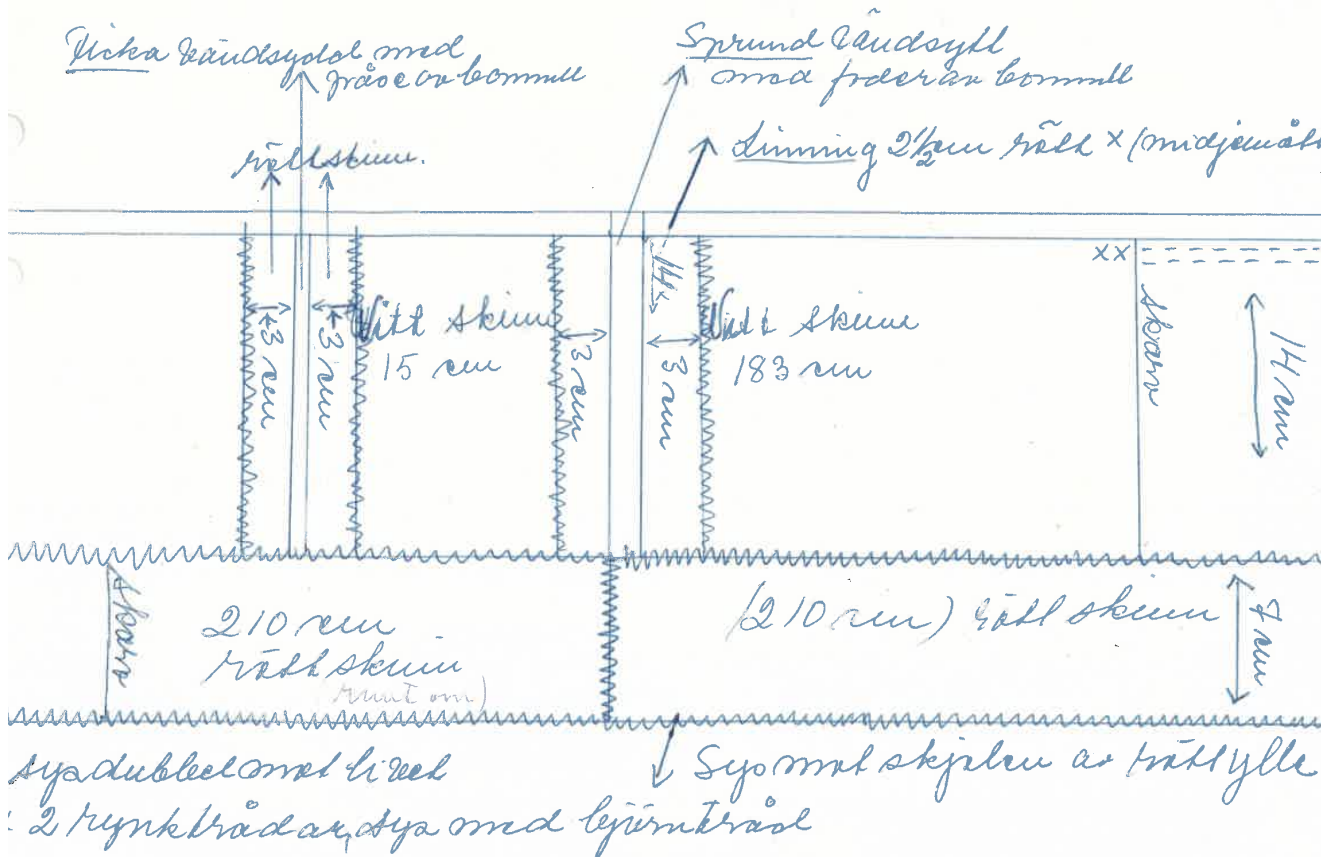 Ficka vändsydd med
påse av bomull
Sprund vändsytt
med foder av bomull
rött skinn.
Linning 2½ cm rött x (midjemått
14
xx
3 cm
3 cm
Vitt skinn
15 cm
3 cm
3 cm
Vitt skinn
183 cm
skarv
14 cm
skarv
210 cm
rött skinn
runt om)
(210 cm) rött skinn
7 cm
sys dubbel mot livet
Sys mot kjolen av rött ylle
2 rynktrådar, sys med björntråd